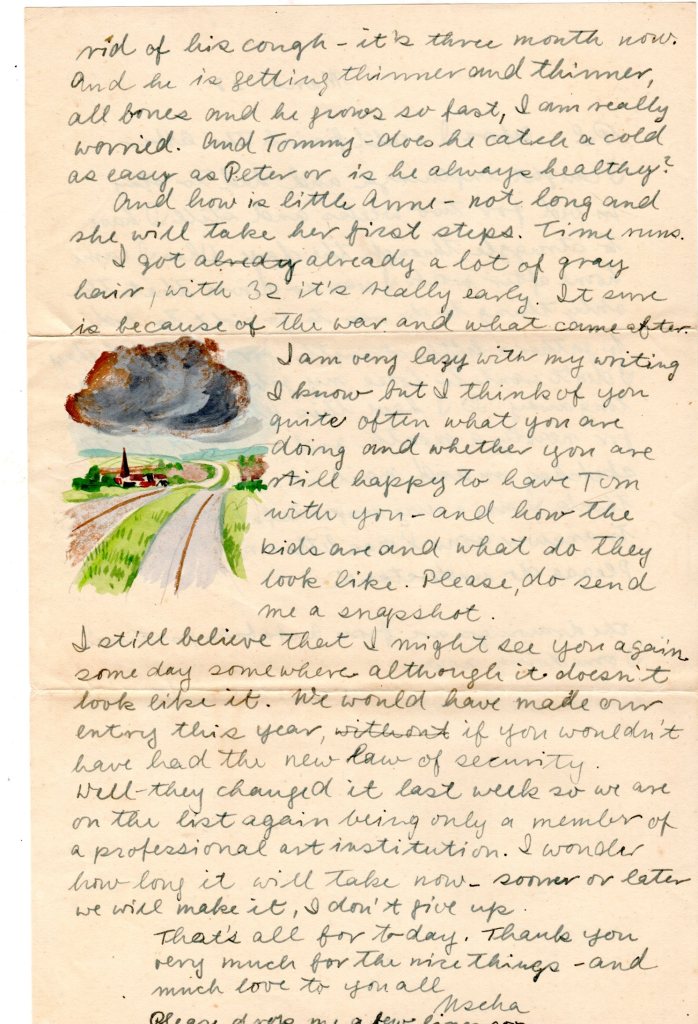 rid of his cough - it's three month now.
And he is getting thinner and thinner,
all bones and he grows so fast, I am really
worried. And Tommy - does he catch a cold
as easy as Peter or is he always healthy?
And how is little Anne - not long and
she will take her first steps. Time runs.
I got alredy already a lot of gray
hair, with 32 it's really early. It sure
is because of the war and what came after.
I am very lazy with my writing
I know but I think of you
quite often what you are
doing and whether you are
still happy to have Tom
with you - and how the
kids are and what do they
look like. Please, do send
me a snapshot.
I still believe that I might see you again
some day somewhere although it doesn't
look like it. We would have made our
entry this year, without if you wouldn't
have had the new law of security.
Well - they changed it last week so we are
on the list again being only a member of
a professional art institution. I wonder
how long it will take now - sooner or later
we will make it, I don't give up.
That's all for today. Thank you
very much for the nice things - and
much love to you all
Uscha
Please drop me a few lines